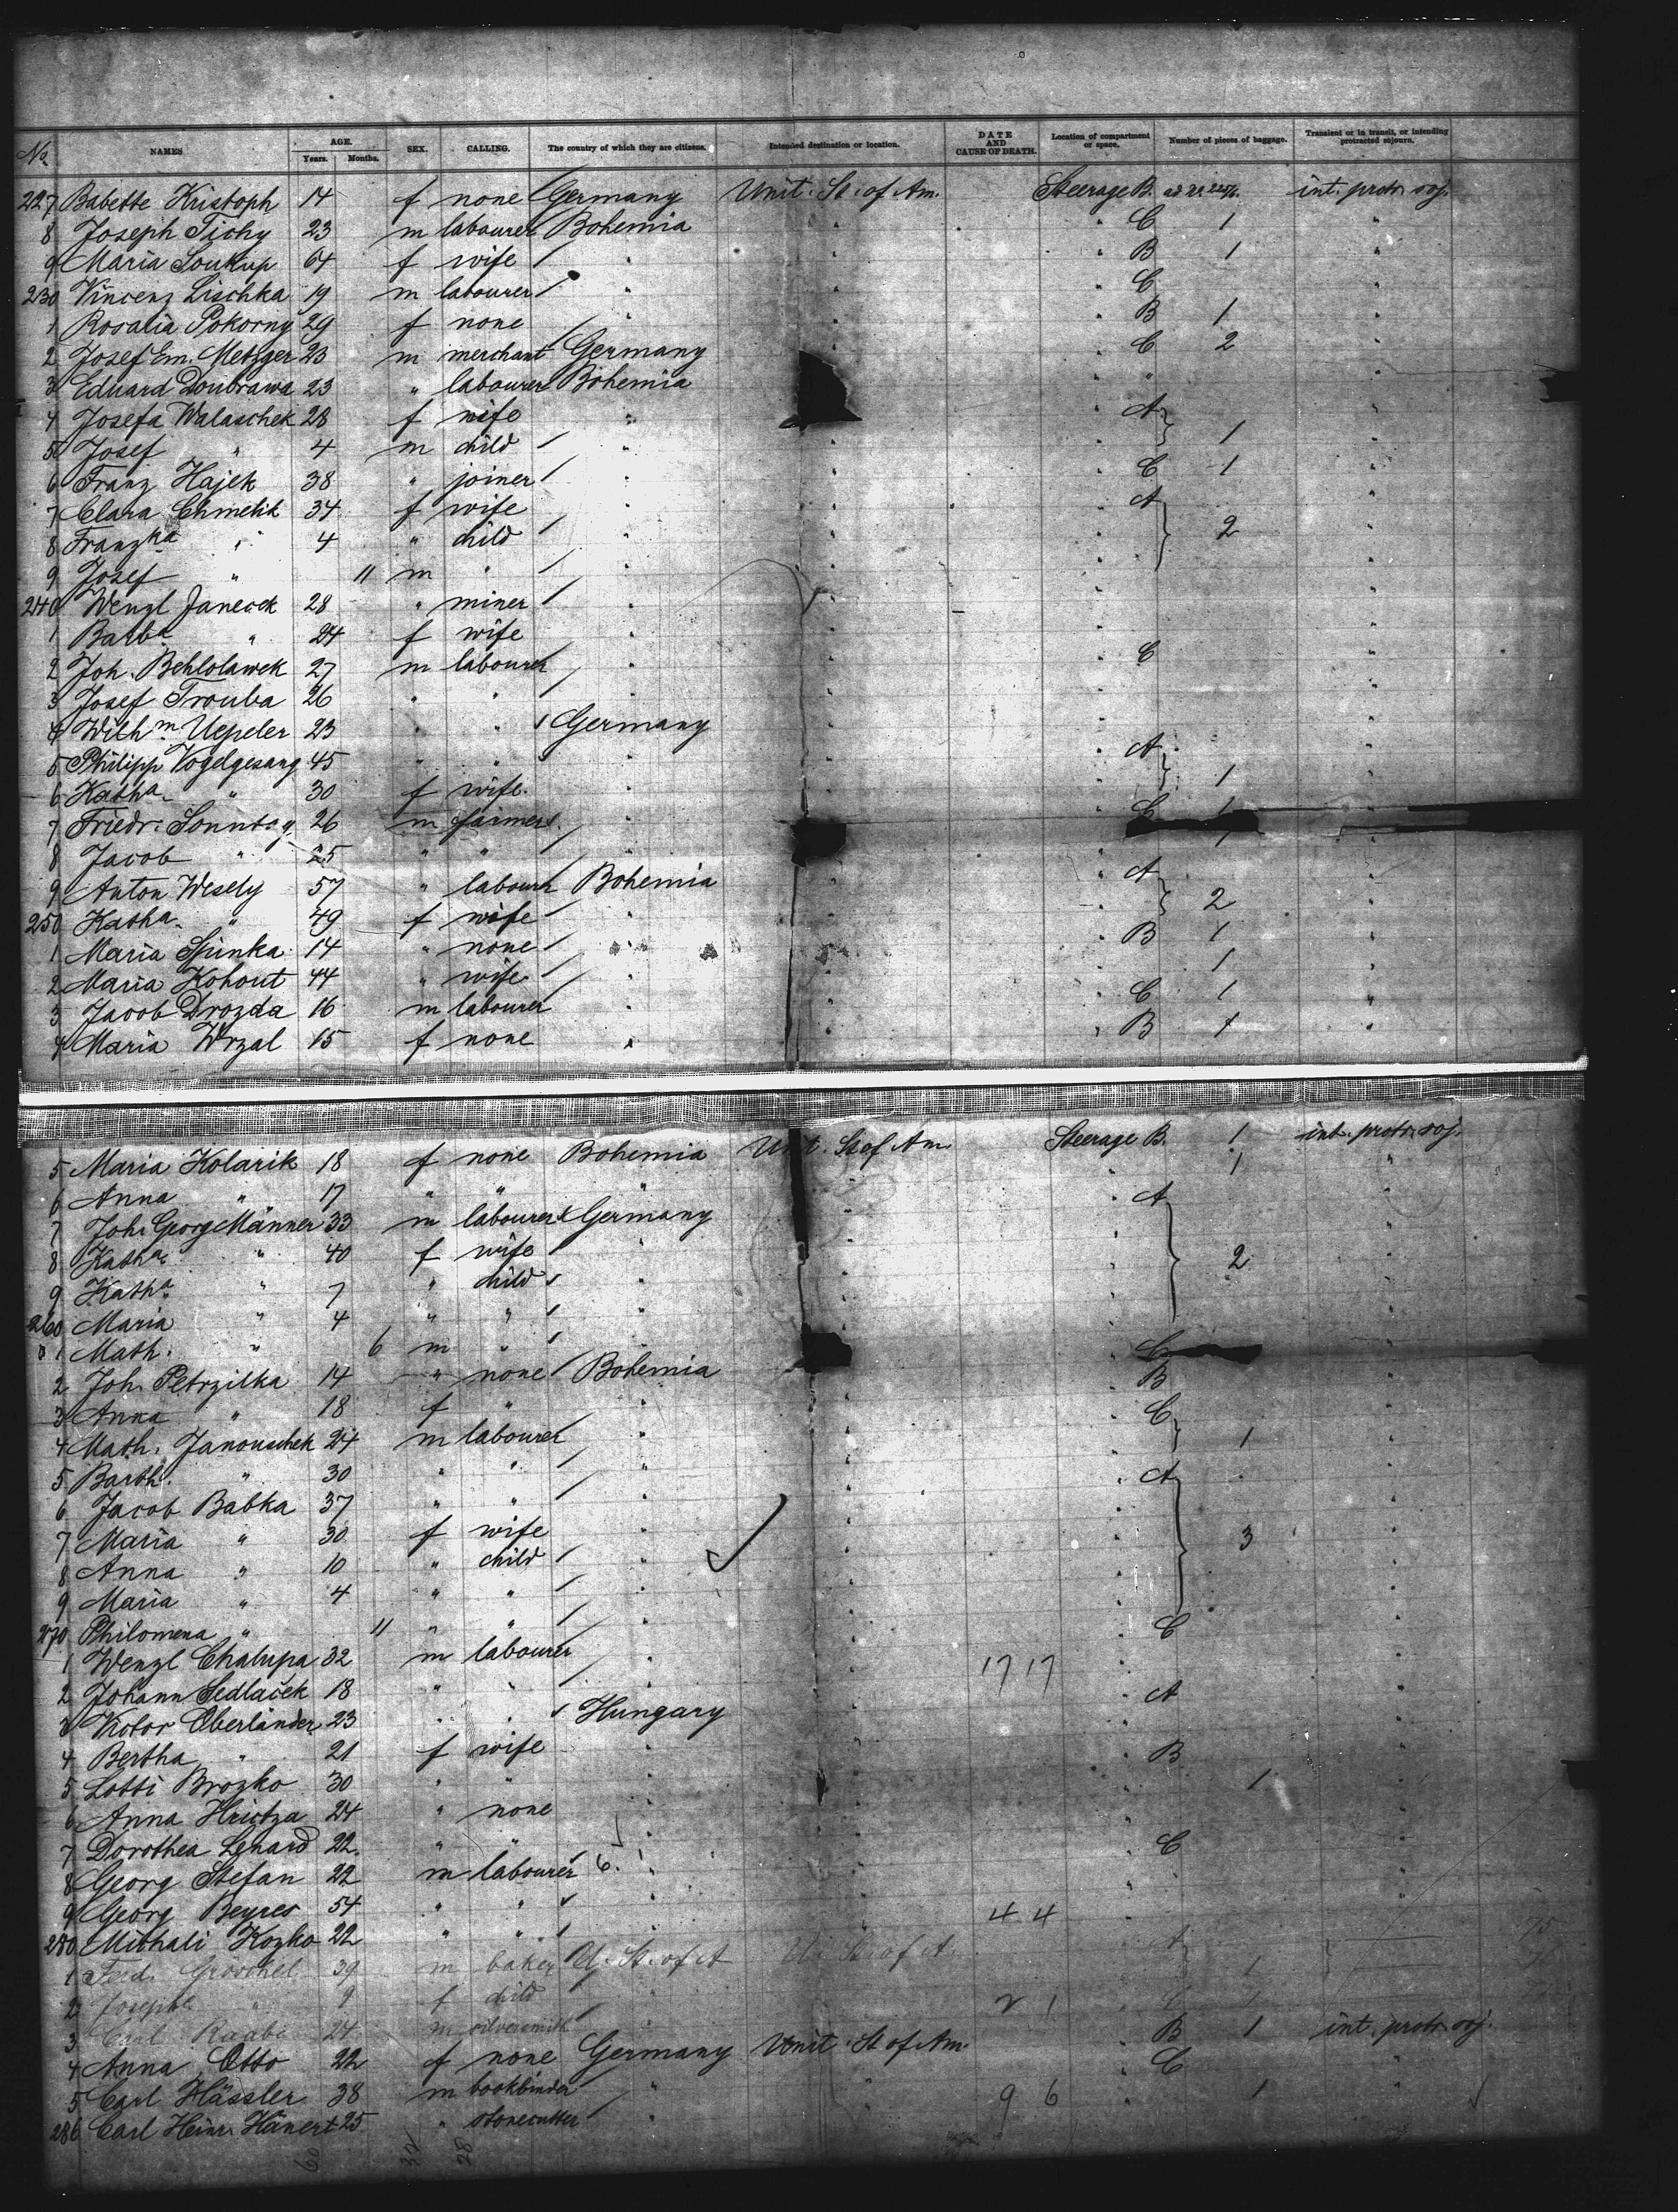 No. NAMES AGE. Years. Months. SEX. CALLING. The country of which they are citizens. Intended destination or location. DATE AND CAUSE OF DEATH. Location of compartment or space. Number of pieces of baggage. Transient or in transit, or intending protracted sojourn.
227 Babette Kristoph 14 f none Germany Unit. St. of Am. Steerage B. int. protr. soj.
8 Joseph Tichy 23 m labourer Bohemia " " C 1 "
9 Maria Soukup 64 f wife " " " B 1 "
230 Vincenz Lischka 19 m labourer " " " C "
1 Rosalia Pokorny 29 f none " " " B 1 "
2 Josef Em. Metzger 23 m merchant Germany " " C 2 "
3 Eduard Doubrawa 23 " labourer Bohemia " " "
4 Josefa Walaschek 28 f wife " " A "
5 Josef " 4 m child " " " 1 "
6 Franz Hajek 38 " joiner " " " C 1 "
7 Clara Chmelik 34 f wife " " " A "
8 Franzka " 4 " child " " " 2 "
9 Josef " 11 m " " " "
240 Wenzl Janecek 28 " miner " " "
1 Barba " 24 f wife " " "
2 Joh. Behlolawek 27 m labourer " " C "
3 Josef Trouba 26 " " " " "
4 Wilhm. Uepeler 23 " " Germany " "
5 Philipp Vogelgesang 45 " " " " A "
6 Katha. " 30 f wife " " 1 "
7 Friedr. Sonntag 26 m farmer " " C 1 "
8 Jacob " 25 " " " " 1 "
9 Anton Wesely 57 " labourer Bohemia " " A "
250 Katha. " 49 f wife " " " 2 "
1 Maria Spinka 14 " none " " " B 1 "
2 Maria Kohout 44 " wife " " 1 "
3 Jacob Drozda 16 m labourer " " " C 1 "
4 Maria Wrzal 15 f none " " " B 1 "
5 Maria Kolarik 18 f none Bohemia Unit. St of Am. Steerage B. 1 int. protr. soj.
6 Anna " 17 " " " " " 1 "
7 Joh. Georg Männer 33 m labourer Germany " " A "
8 Katha. " 40 f wife " " " "
9 Katha. " 7 " child " " " 2 "
260 Maria " 4 " " " " " "
1 Math. " 6 m " " " " "
2 Joh. Petrzilka 14 " none Bohemia " " C "
3 Anna " 18 f " " " " B "
4 Math. Janouschek 24 m labourer " " " C "
5 Barth. " 30 " " " " " 1 "
6 Jacob Babka 37 " " " " " A "
7 Maria " 30 f wife " " " "
8 Anna " 10 " child " " " 3 "
9 Maria " 4 " " " " " "
270 Philomena " 11 " " " " " "
1 Wenzl Chalupa 32 m labourer " " " C "
2 Johann Sedlaček 18 " " " " 17 17 " "
3 Victor Oberländer 23 " " Hungary " " A "
4 Bertha " 21 f wife " " " "
5 Lotti Brozko 30 " " " " " B "
6 Anna Hrictza 24 " none " " " 1 "
7 Dorothea Lenard 22 " " " " " "
8 Georg Stefan 22 m labourer 6. " " C "
9 Georg Beyres 54 " " " " " "
280 Mithali Kozko 22 " " " " 4 4 " "
1 Ferd. Gröschel 39 m baker U. St. of A U. St. of A. A 1
2 Josephe " 9 f child " "
3 Carl Raabe 24 m silversmith " " 2 1 C 1
4 Anna Otto 22 f none Germany Unit. St of Am. B 1 int. protr. soj.
5 Carl Hässler 38 m bookbinder " " C "
286 Carl Heinr. Hänert 25 " stonecutter " " 9 6 " 1 "
60 32 28